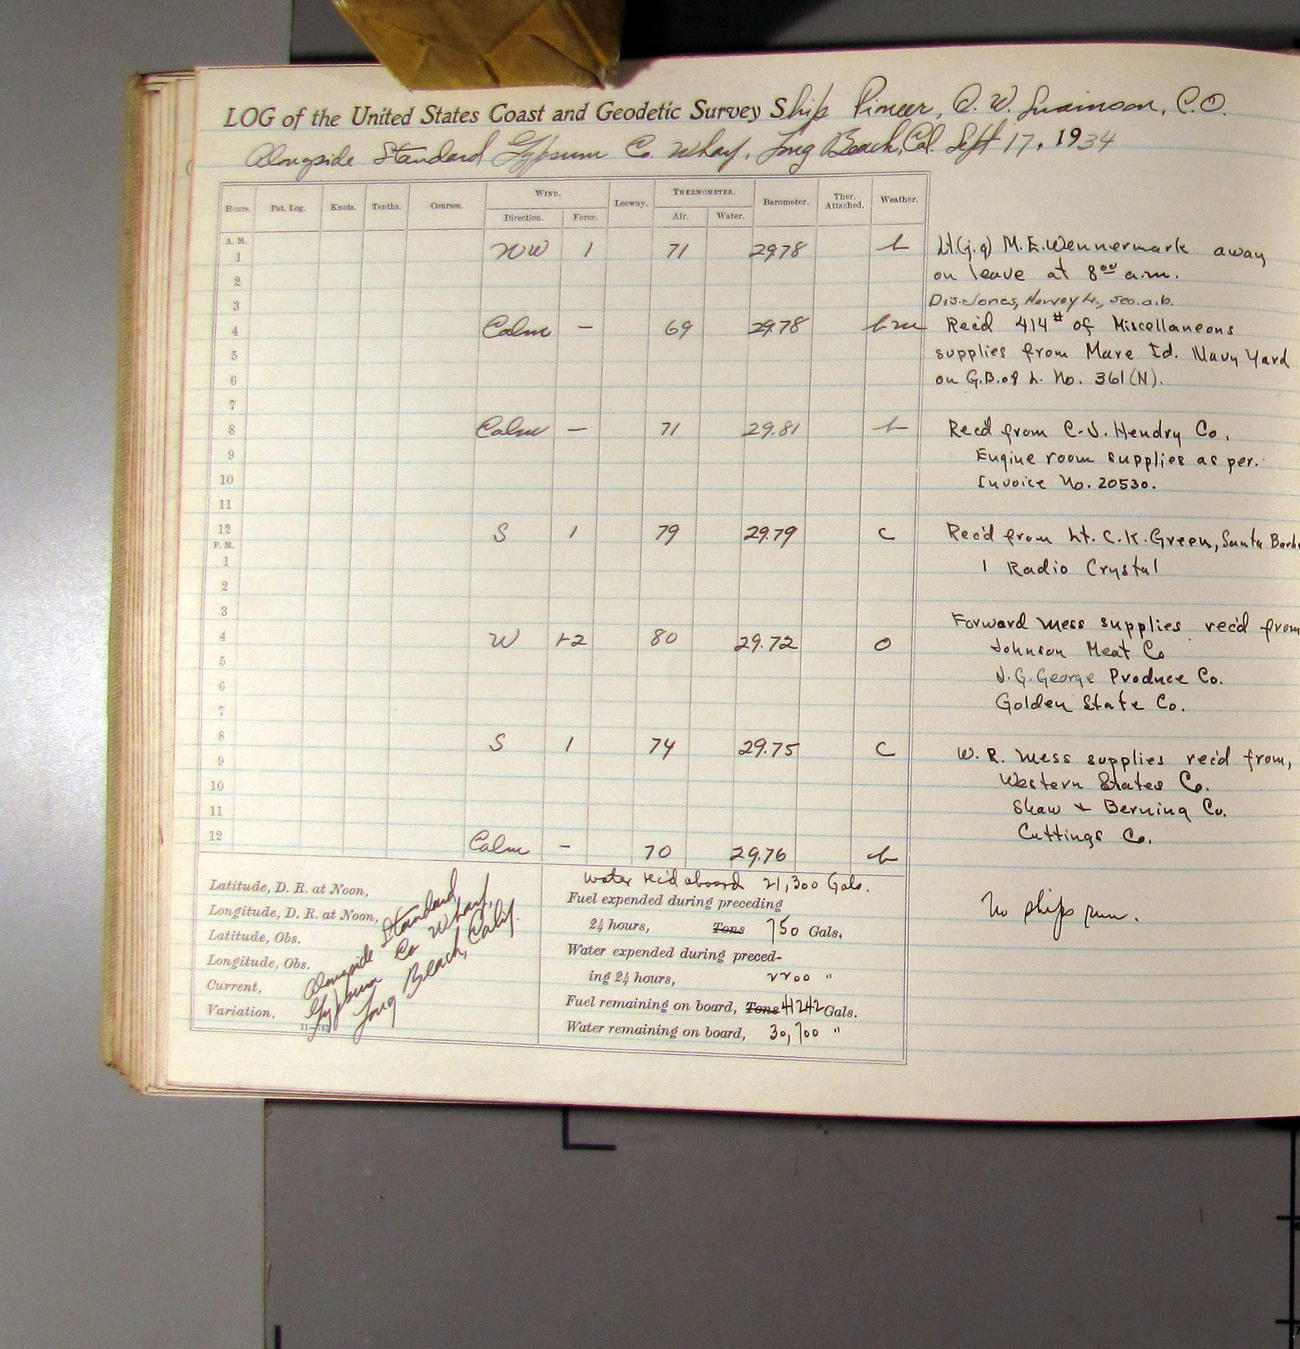 LOG of the United States Coast and Geodetic Survey Ship Pioneer, O. W. Swainson, C.O.
Alongside Standard Gypsum Co. Wharf, Long Beach, Cal. Sept 17, 1934
Hours. Pat. Log. Knots. Tenths. Courses. WIND. Leeway. THERMOMETER. Barometer. Ther. Attached. Weather.
Direction. Force. Air. Water.
A. M.
1 NW 1 71 29.78 b
2
3
4 Calm – 69 29.78 bm
5
6
7
8 Calm – 71 29.81 b
9
10
11
12 S 1 79 29.79 c
P. M.
1
2
3
4 W 1-2 80 29.72 O
5
6
7
8 S 1 74 29.75 c
9
10
11
12 Calm – 70 29.76 b
Lt(j.g) M. E. Wennermark away
on leave at 8ºº a.m.
Dis. Jones, Harvey L., sea. a.b.
Rec'd 414# of Miscellaneons
supplies from Mare Id. Navy Yard
on G.B. of L. No. 361 (N).
Rec'd from C. J. Hendry Co.
Engine room supplies as per.
Invoice No. 20530.
Rec'd from Lt. C. K. Green, Santa Barb
1 Radio Crystal
Forward mess supplies rec'd from
Johnson Meat Co
J. G. George Produce Co.
Golden State Co.
W. R. mess supplies rec'd from,
Western States Co.
Shaw & Berning Co.
Cuttings Co.
No ships run.
Latitude, D. R. at Noon,
Longitude, D. R. at Noon,
Latitude, Obs.
Longitude, Obs.
Current,
Variation,
Alongside Standard
Gypsum Co Wharf,
Long Beach, Calif.
Water rec'd aboard 21,300 Gals.
Fuel expended during preceding
24 hours, Tons 750 Gals.
Water expended during preced-
ing 24 hours, 2200 "
Fuel remaining on board, Tons 41242 Gals.
Water remaining on board, 30,700 "